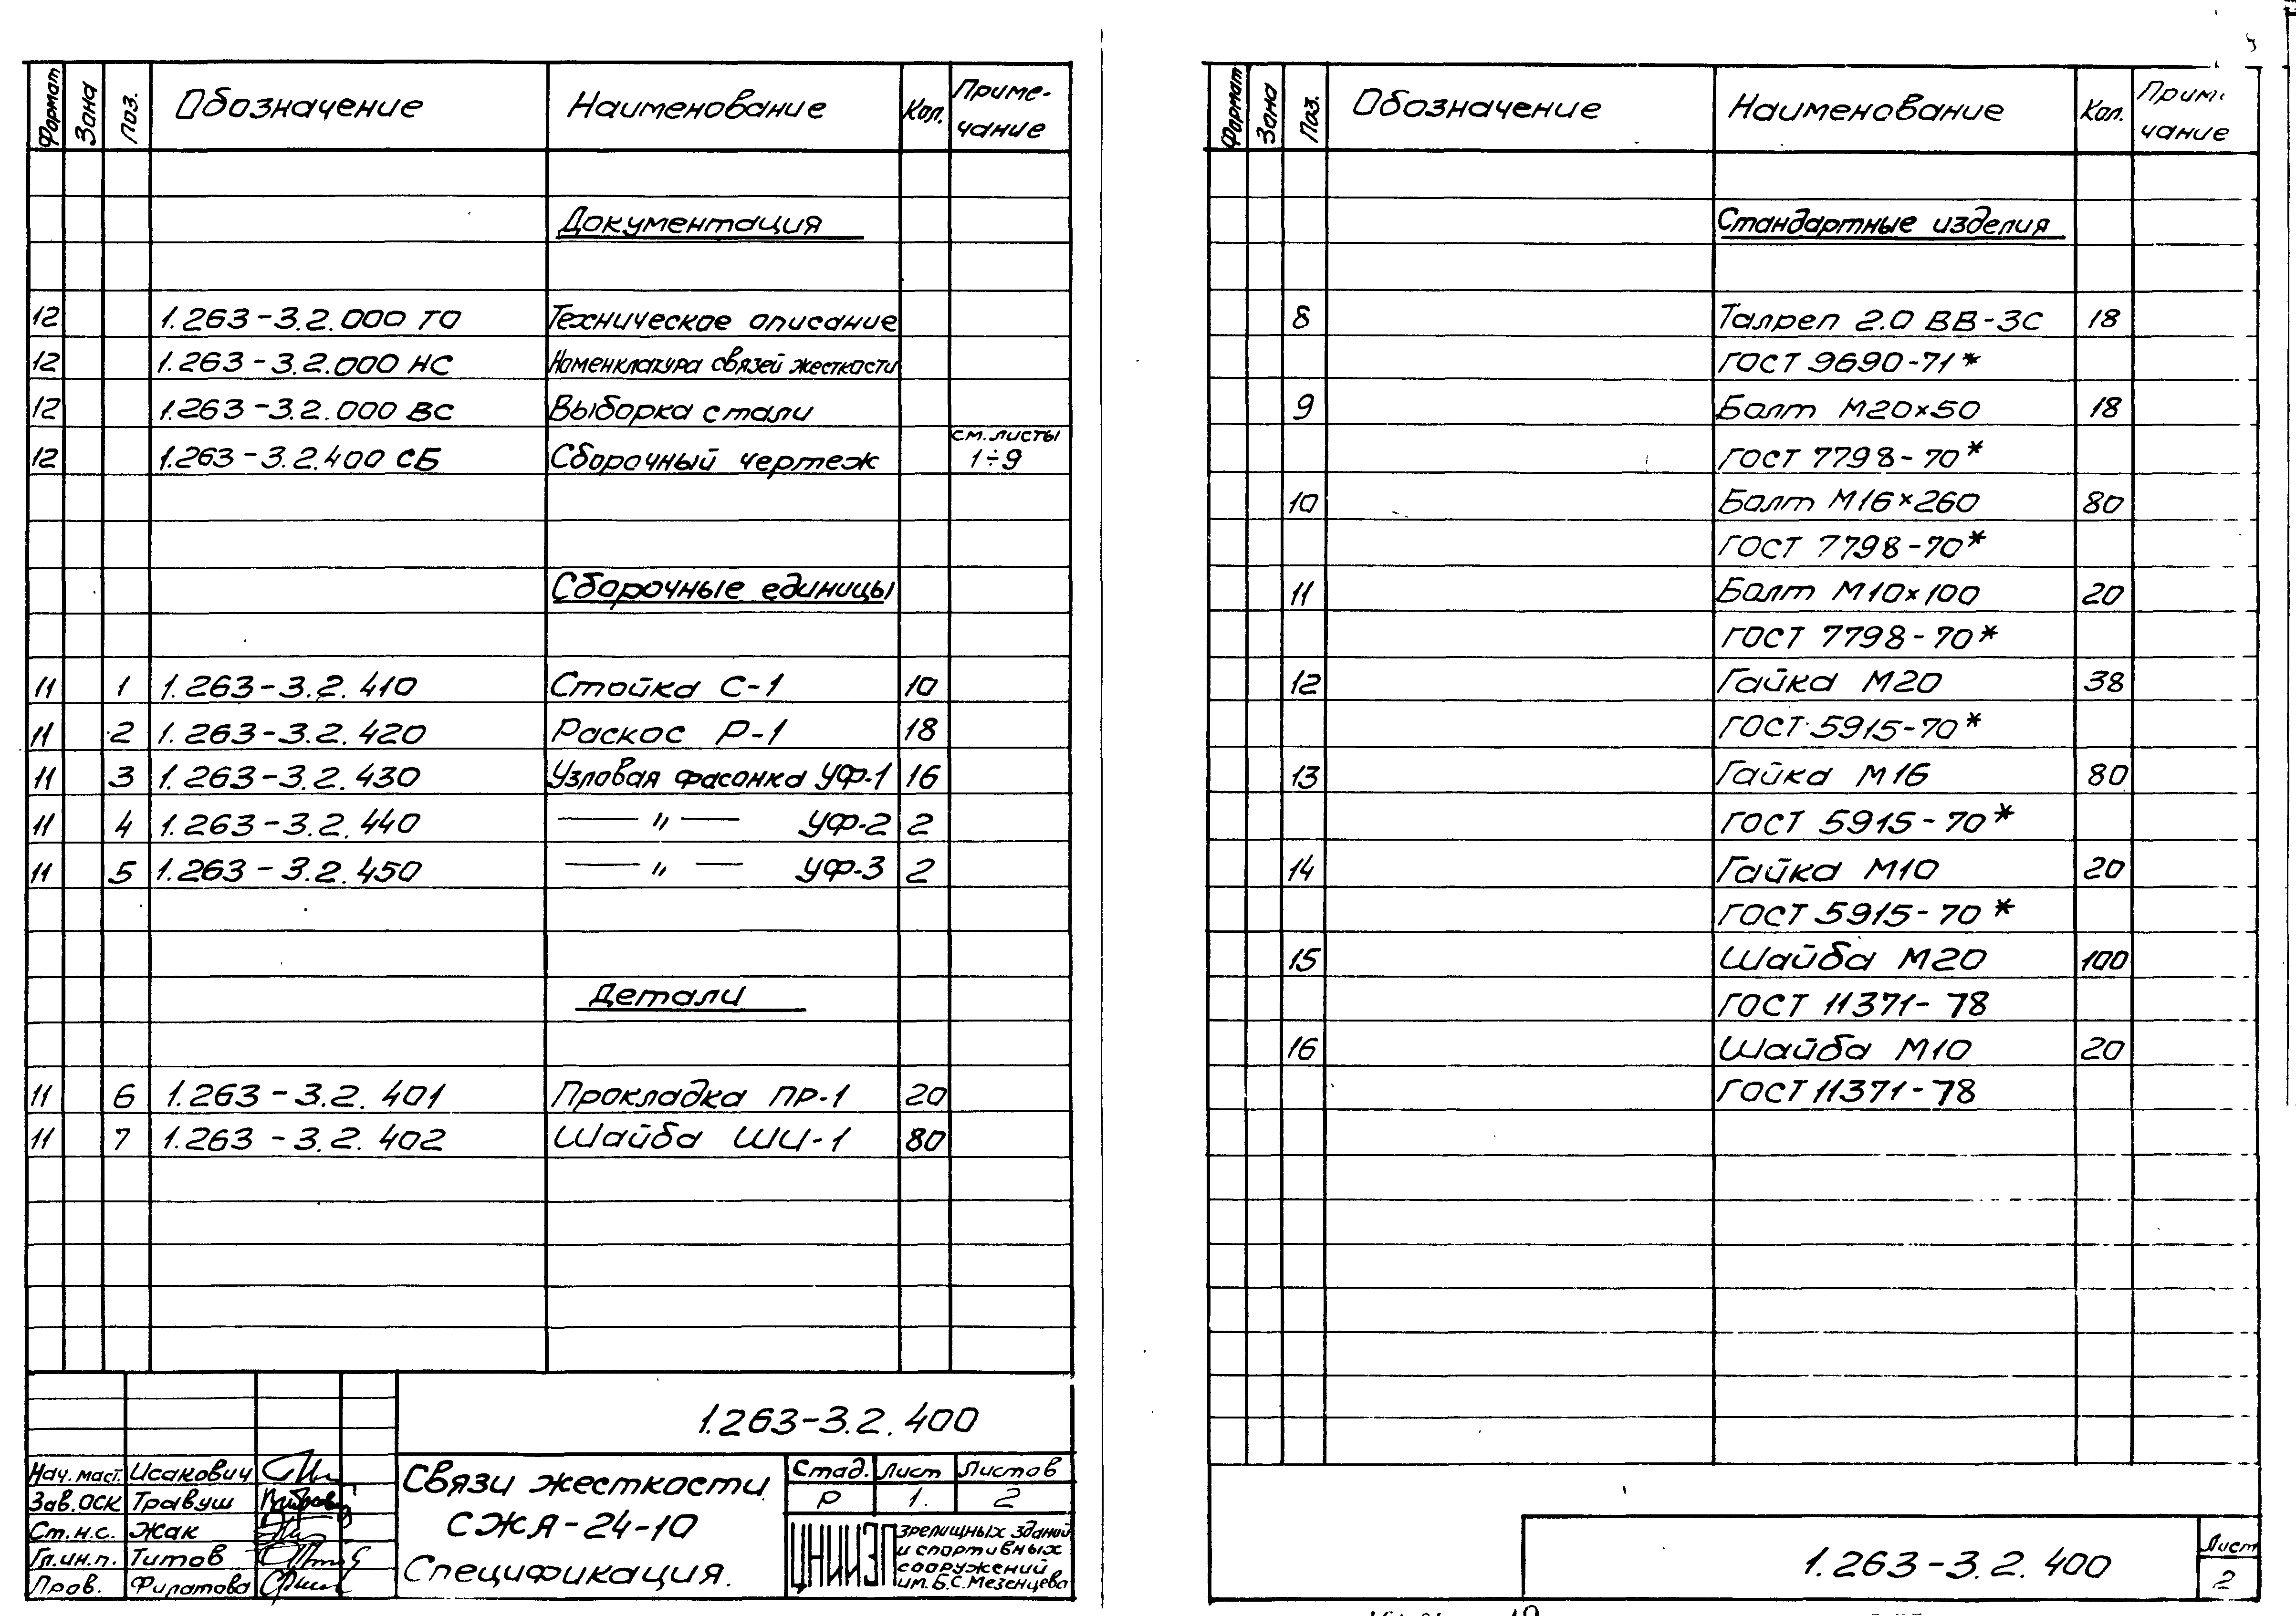 Формат Зона Поз. Обозначение Наименование Кол. Приме-
чание
Документация
12 1.263-3.2.000 ТО Техническое описание
12 1.263-3.2.000 НС Номенклатура связей жесткости
12 1.263-3.2.000 ВС Выборка стали
см. листы
12 1.263-3.2.400 СБ Сборочный чертеж 1÷9
Сборочные единицы
11 1 1.263-3.2.410 Стойка С-1 10
11 2 1.263-3.2.420 Раскос Р-1 18
11 3 1.263-3.2.430 Узловая фасонка УФ-1 16
11 4 1.263-3.2.440 — " — УФ-2 2
11 5 1.263-3.2.450 — " — УФ-3 2
Детали
11 6 1.263-3.2.401 Прокладка ПР-1 20
11 7 1.263-3.2.402 Шайба ШЦ-1 80
1.263-3.2.400
Нач. маст. Исакович
Зав. ОСК Травуш
Ст. н.с. Жак
Гл. ин. п. Титов
Пров. Филатова
Связи жесткости
СЖЯ-24-10
Спецификация.
Стад. Лист Листов
Р 1. 2
ЦНИИЭП зрелищных зданий
и спортивных
сооружений
им. Б.С. Мезенцева
Формат Зона Поз. Обозначение Наименование Кол. Прим
чание
Стандартные изделия
8 Талреп 2.0 ВВ-ЗС 18
ГОСТ 9690-71*
9 Болт М20×50 18
ГОСТ 7798-70*
10 Болт М16×260 80
ГОСТ 7798-70*
11 Болт М10×100 20
ГОСТ 7798-70*
12 Гайка М20 38
ГОСТ 5915-70*
13 Гайка М16 80
ГОСТ 5915-70*
14 Гайка М10 20
ГОСТ 5915-70*
15 Шайба М20 100
ГОСТ 11371-78
16 Шайба М10 20
ГОСТ 11371-78
1.263-3.2.400
Лист
2